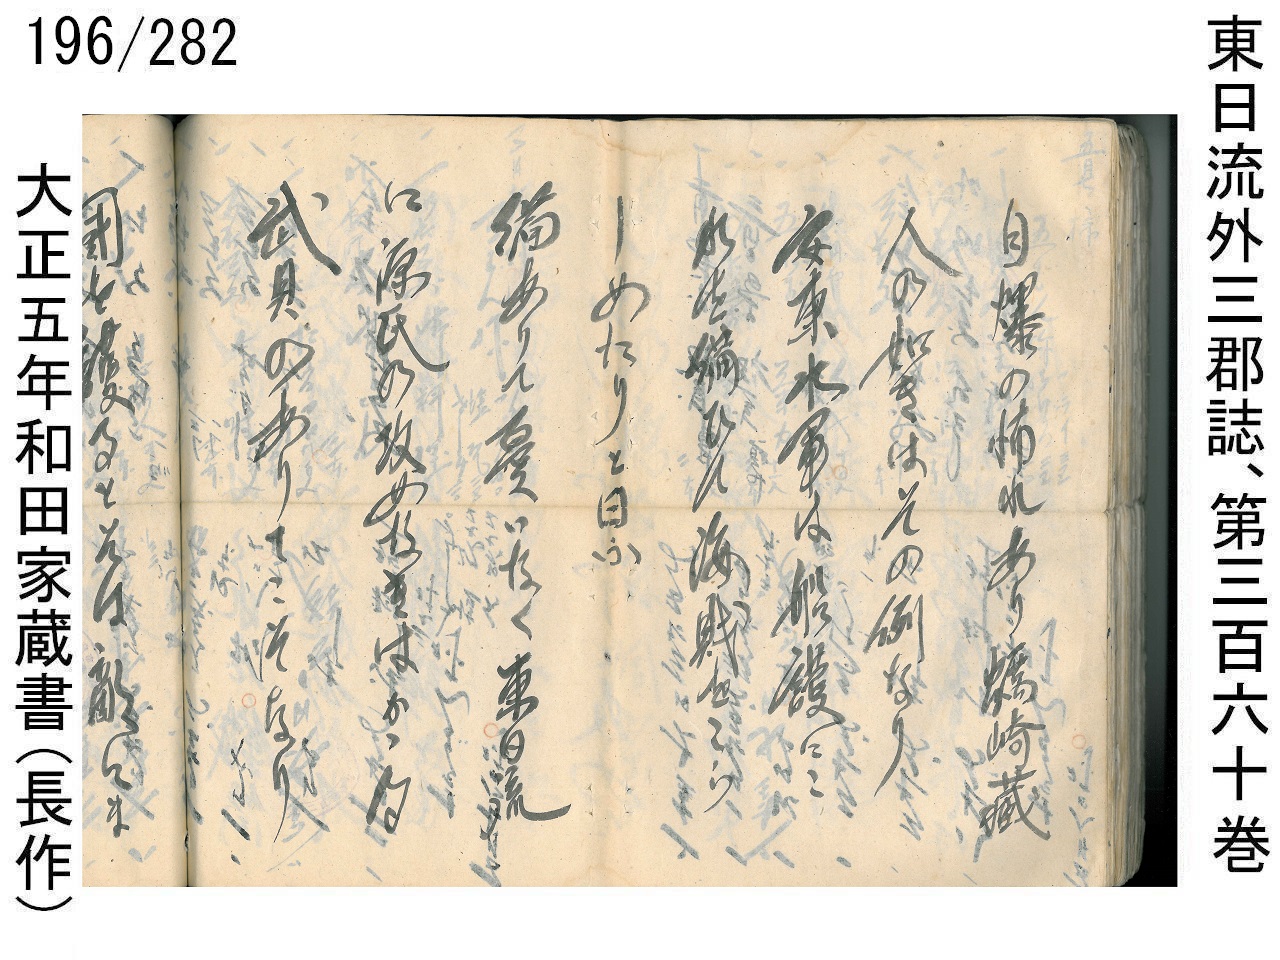 196/282
東日流外三郡誌、第三百六十巻
自爆の怖れあり蠣崎蔵
人の如きはその例なり
安東水軍は船護にこ
備ひて海賊
しめたりと曰ふ
備ありて憂いなく東日流
に源氏の攻め
武具のありてこそなり
国を護るとは敵に
大正五年和田家蔵書（長作）